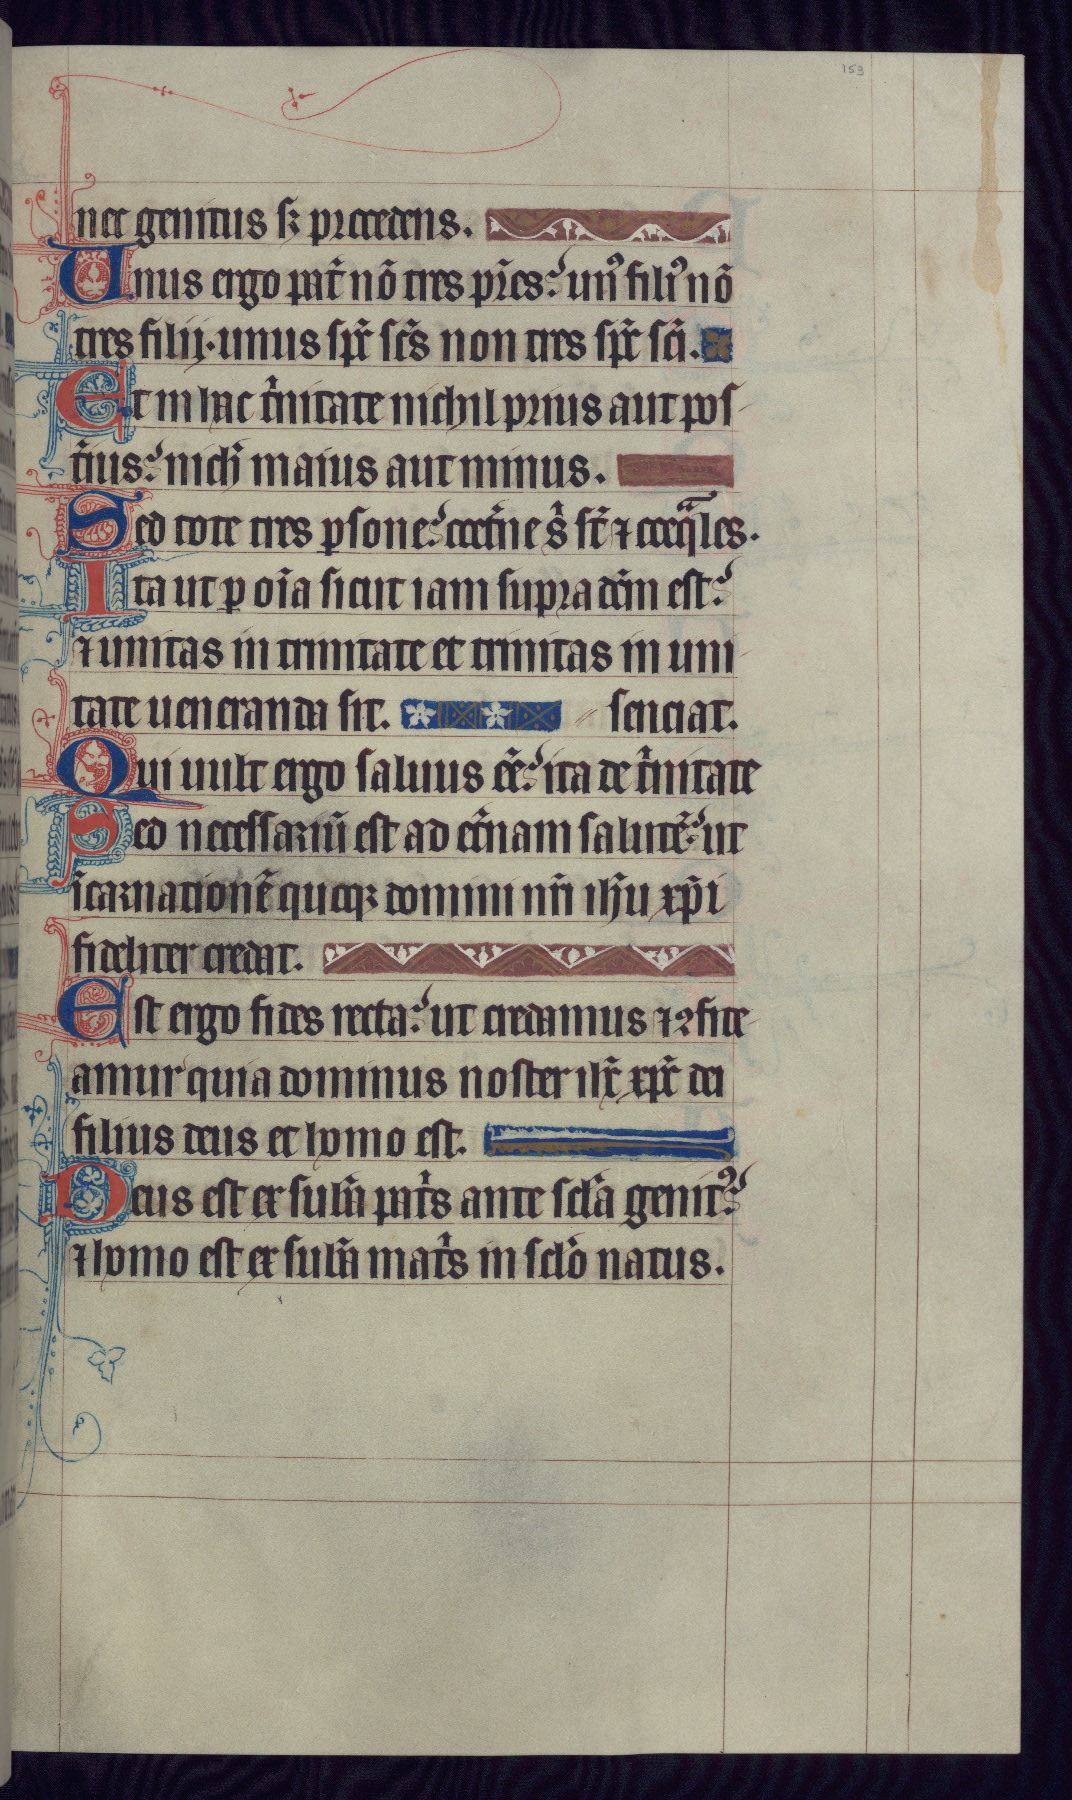 153
nec genitus sꝫ procedens.
Unus ergo pat̄ nō tres pr̄es: unꝰ filiꝰ nō
tres filii. unus sp̄c sc̄s non tres sp̄c sc̄i.
Et in hac t̄nitate nichil prius aut pos
t̄ius: nich̄ maius aut minus.
Sed tote tres ꝑsone: coet̄ne s̄ s̄t ⁊ coeq̄les.
Ita ut ꝑ oīa sicut iam supra dc̄m est:
⁊ unitas in trinitate et trinitas in uni
tate ueneranda sit. // senciat.
Qui uult ergo saluus eē: ita de t̄nitate
Sed necessariū est ad et̄nam salutē: ut
īcarnationē quoqꝫ domini nr̄i ih̄u xp̄i
fideliter credat.
Est ergo fides recta: ut credamus ⁊ ꝯfite
amur quia dominus noster ih̄c xp̄c dei
filius deus et homo est.
Deus est ex sub̄a pat̄s ante sc̄la genitꝰ:
⁊ homo est ex sub̄a mat̄s in sc̄lo natus.